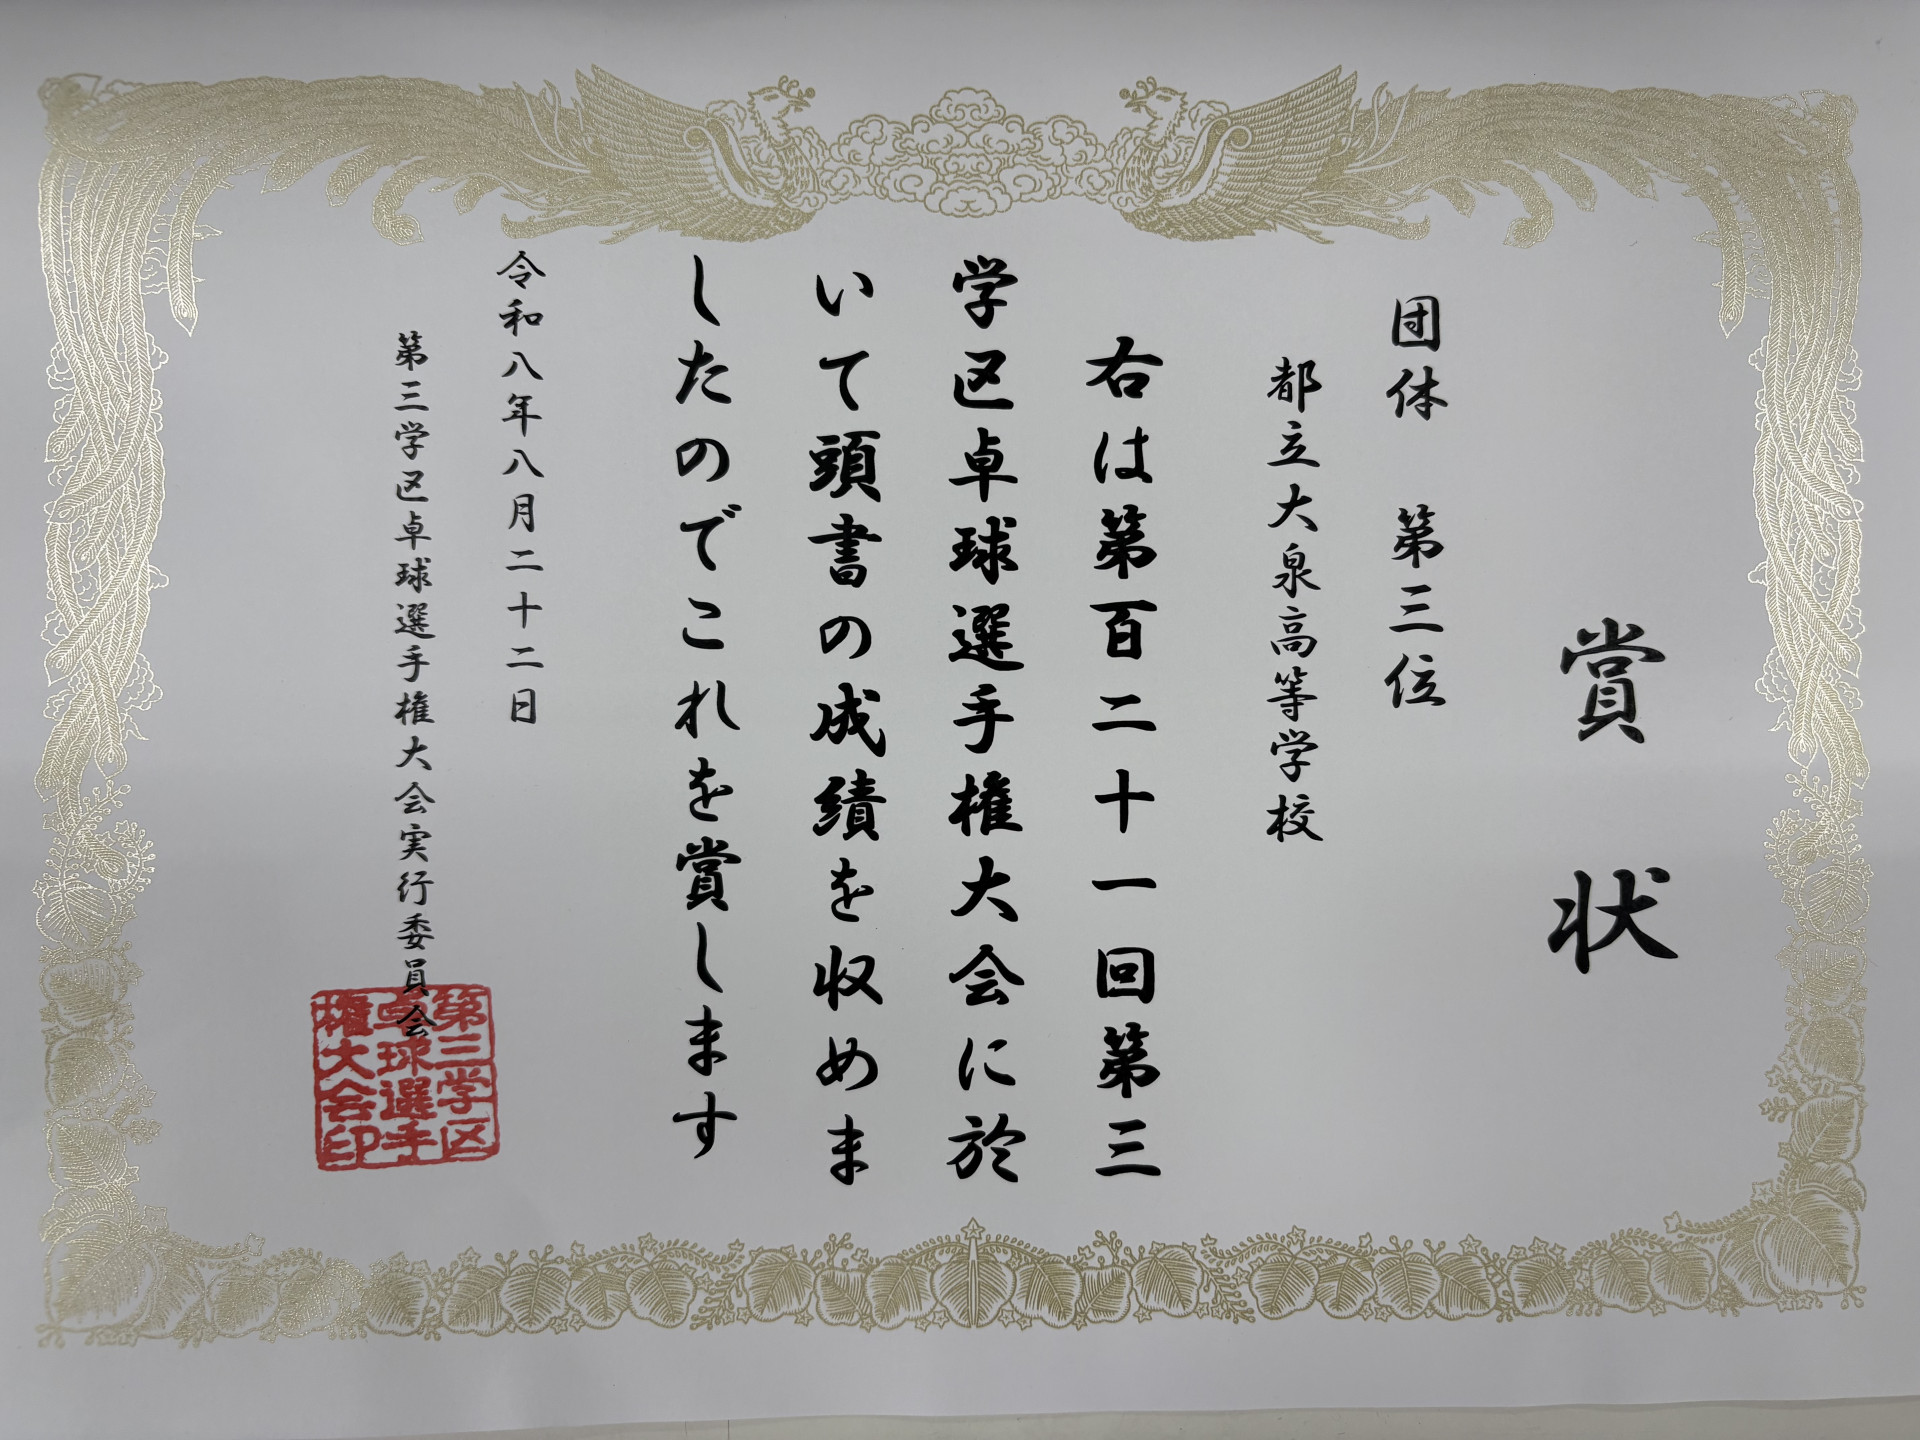 賞状
団体 第三位
都立大泉高等学校
右は第百二十一回第三
学区卓球選手権大会に於
いて頭書の成績を収めま
したのでこれを賞します
令和八年八月二十二日
第三学区卓球選手権大会実行委員会
第三学区
卓球選手
権大会印